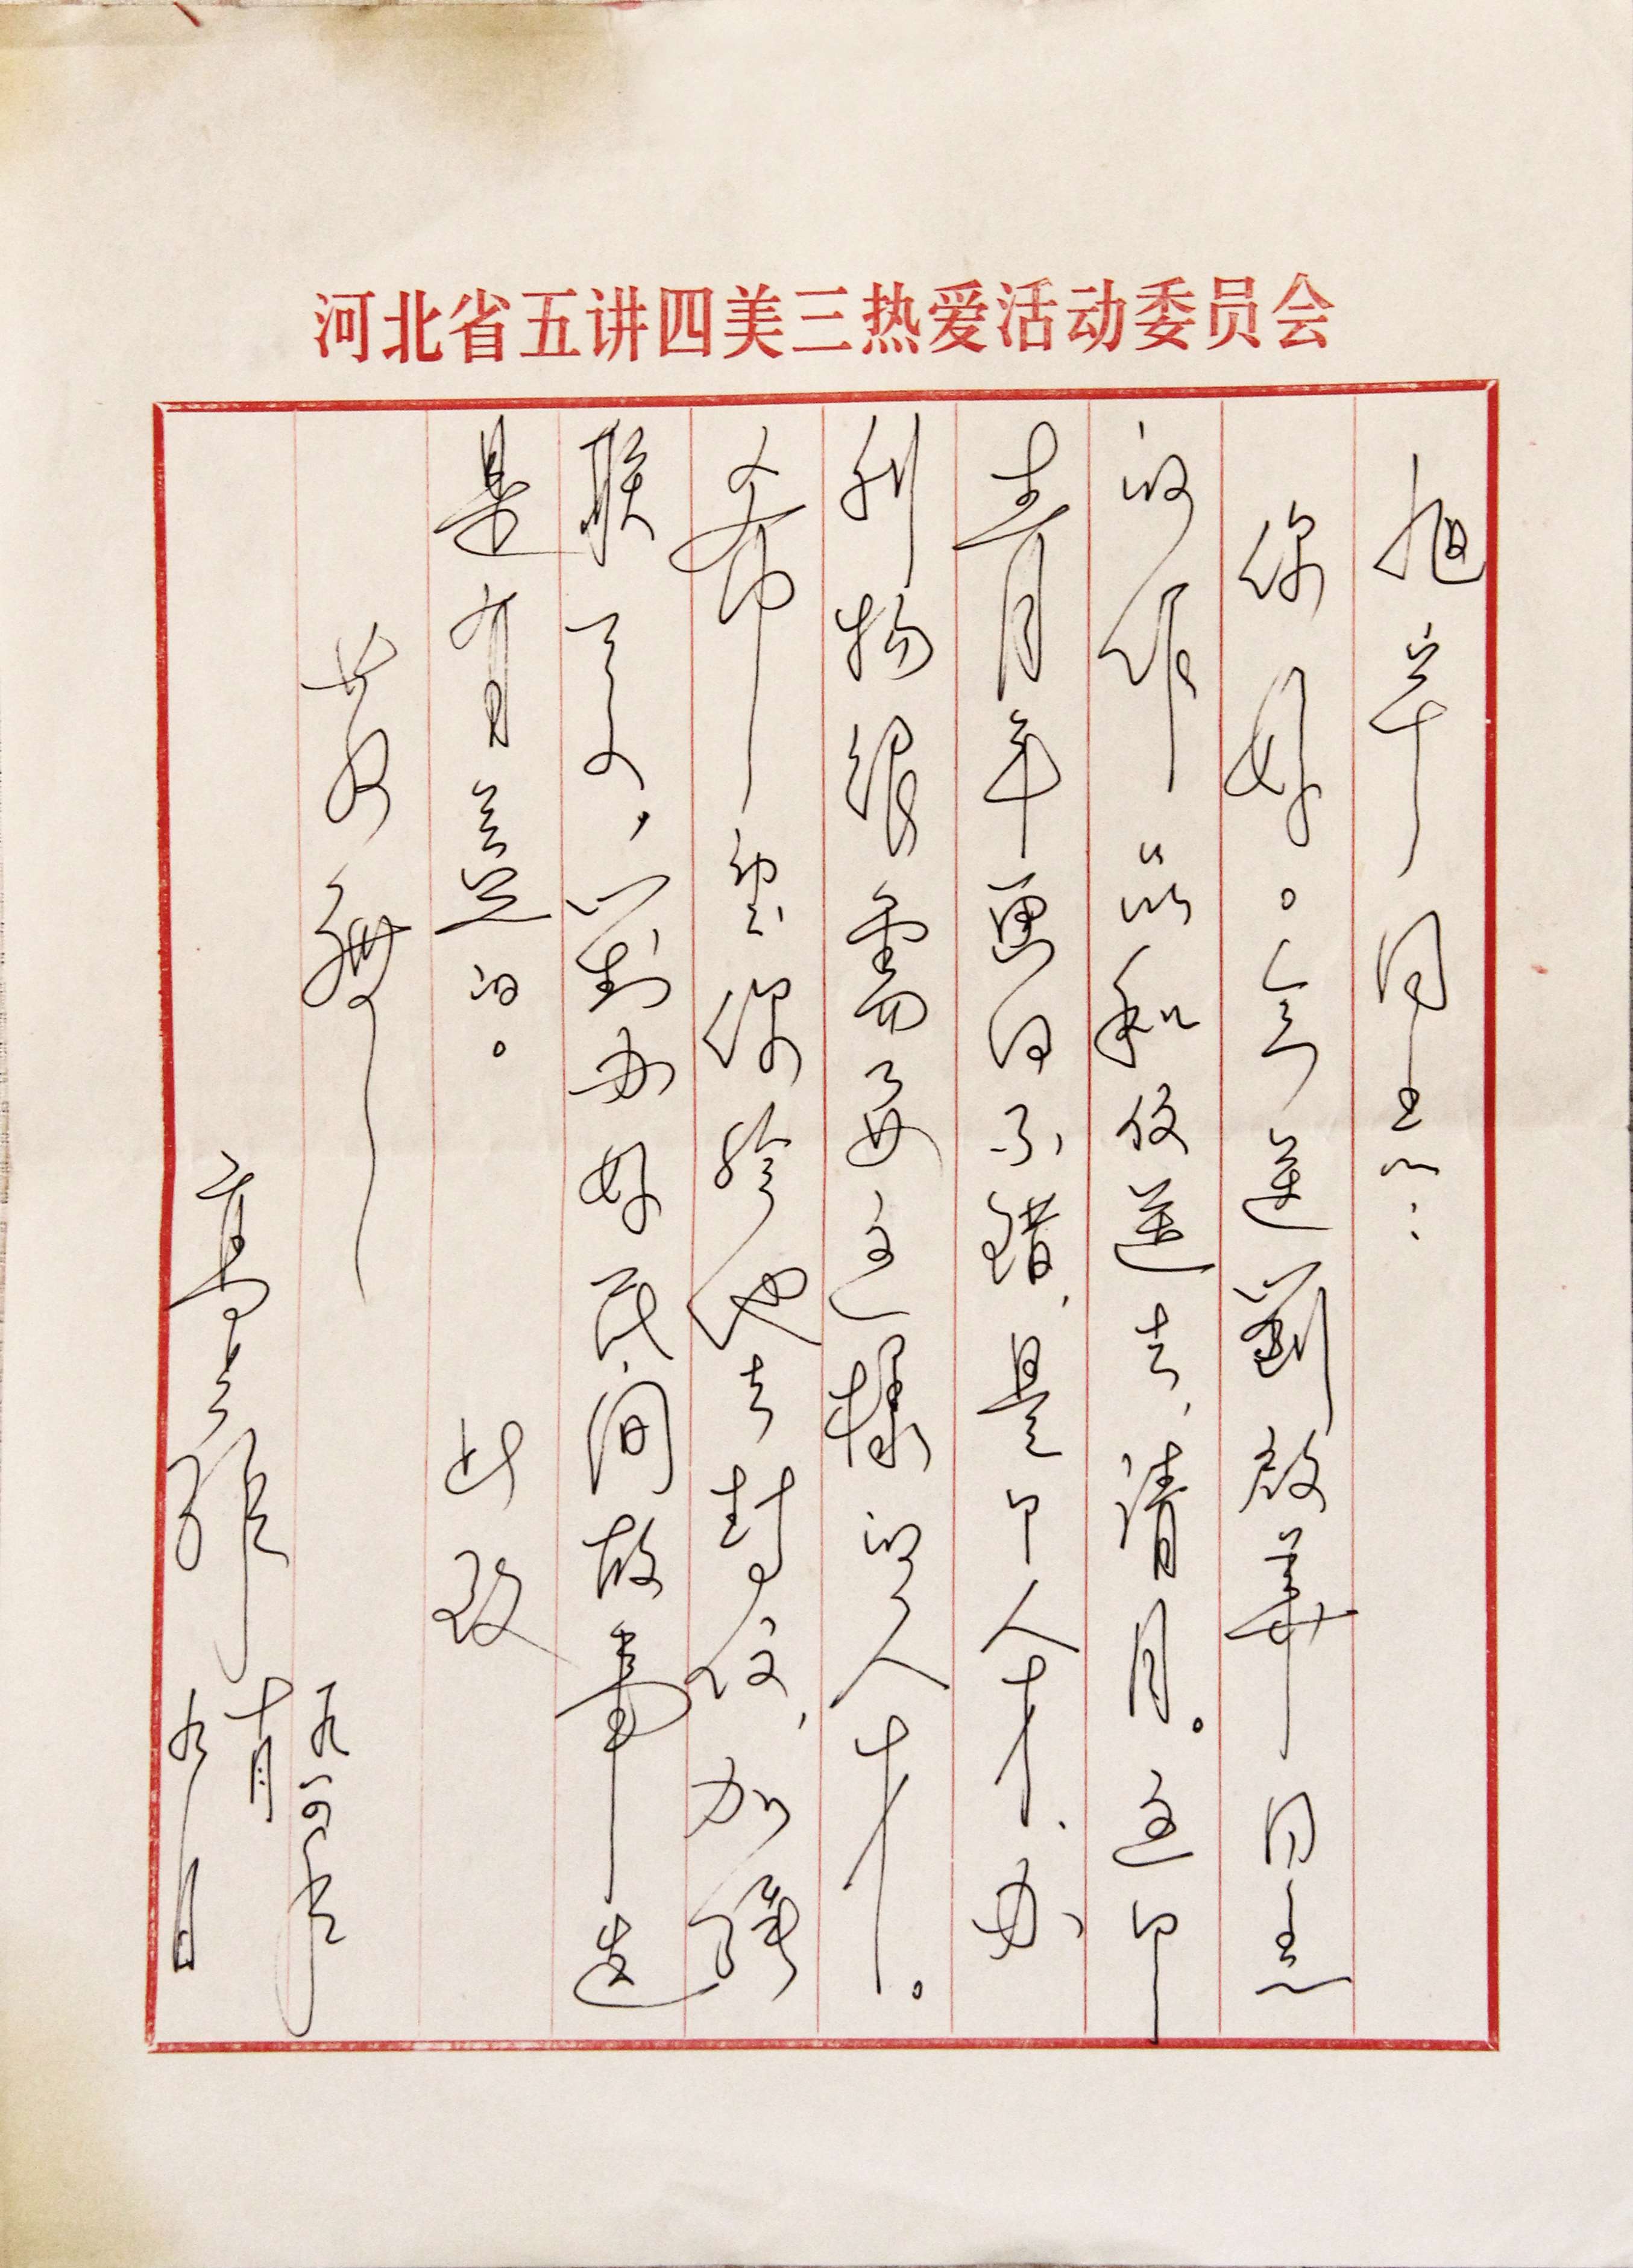 河北省五讲四美三热爱活动委员会
旭同志：
你好。今送劉啟華同志
的作品和信送去，请阅。这个
青年画的不错，是个人才，办
刊物很需要这样的人才。
希望你给他去封信，加强
联系，对办好民间故事选
是有益的。 此致
敬礼
高占祥
九八四年
十月
九日